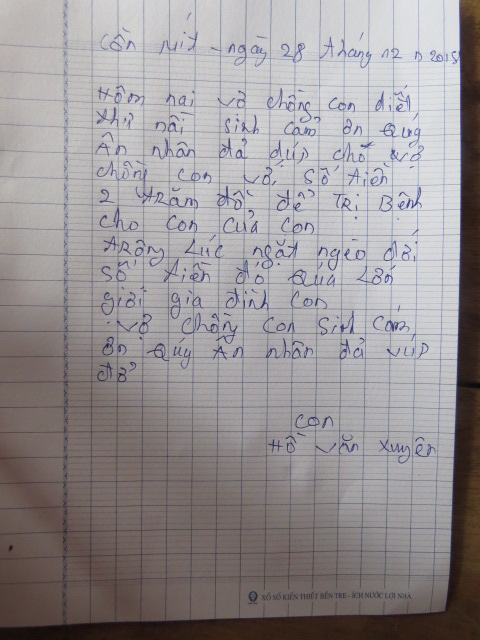 Cồn Mít - ngày 28 tháng 12 n 2015
Hôm nai vở chồng con diết
thứ nầi sinh cảm ơn quý
Ân nhân đả dúp cho vợ
chồng con vớ, số tiền
2 trăm đô để Trị Bệnh
cho con của con
trong Lúc ngặt ngèo đối
số tiền đó quá Lớn
giới gia đình con
vở chồng con sinh cảm
ơn quý Ân nhân đả vúp
đở
con
Hồ văn Xuyên
XỔ SỐ KIẾN THIẾT BẾN TRE - ÍCH NƯỚC LỢI NHÀ